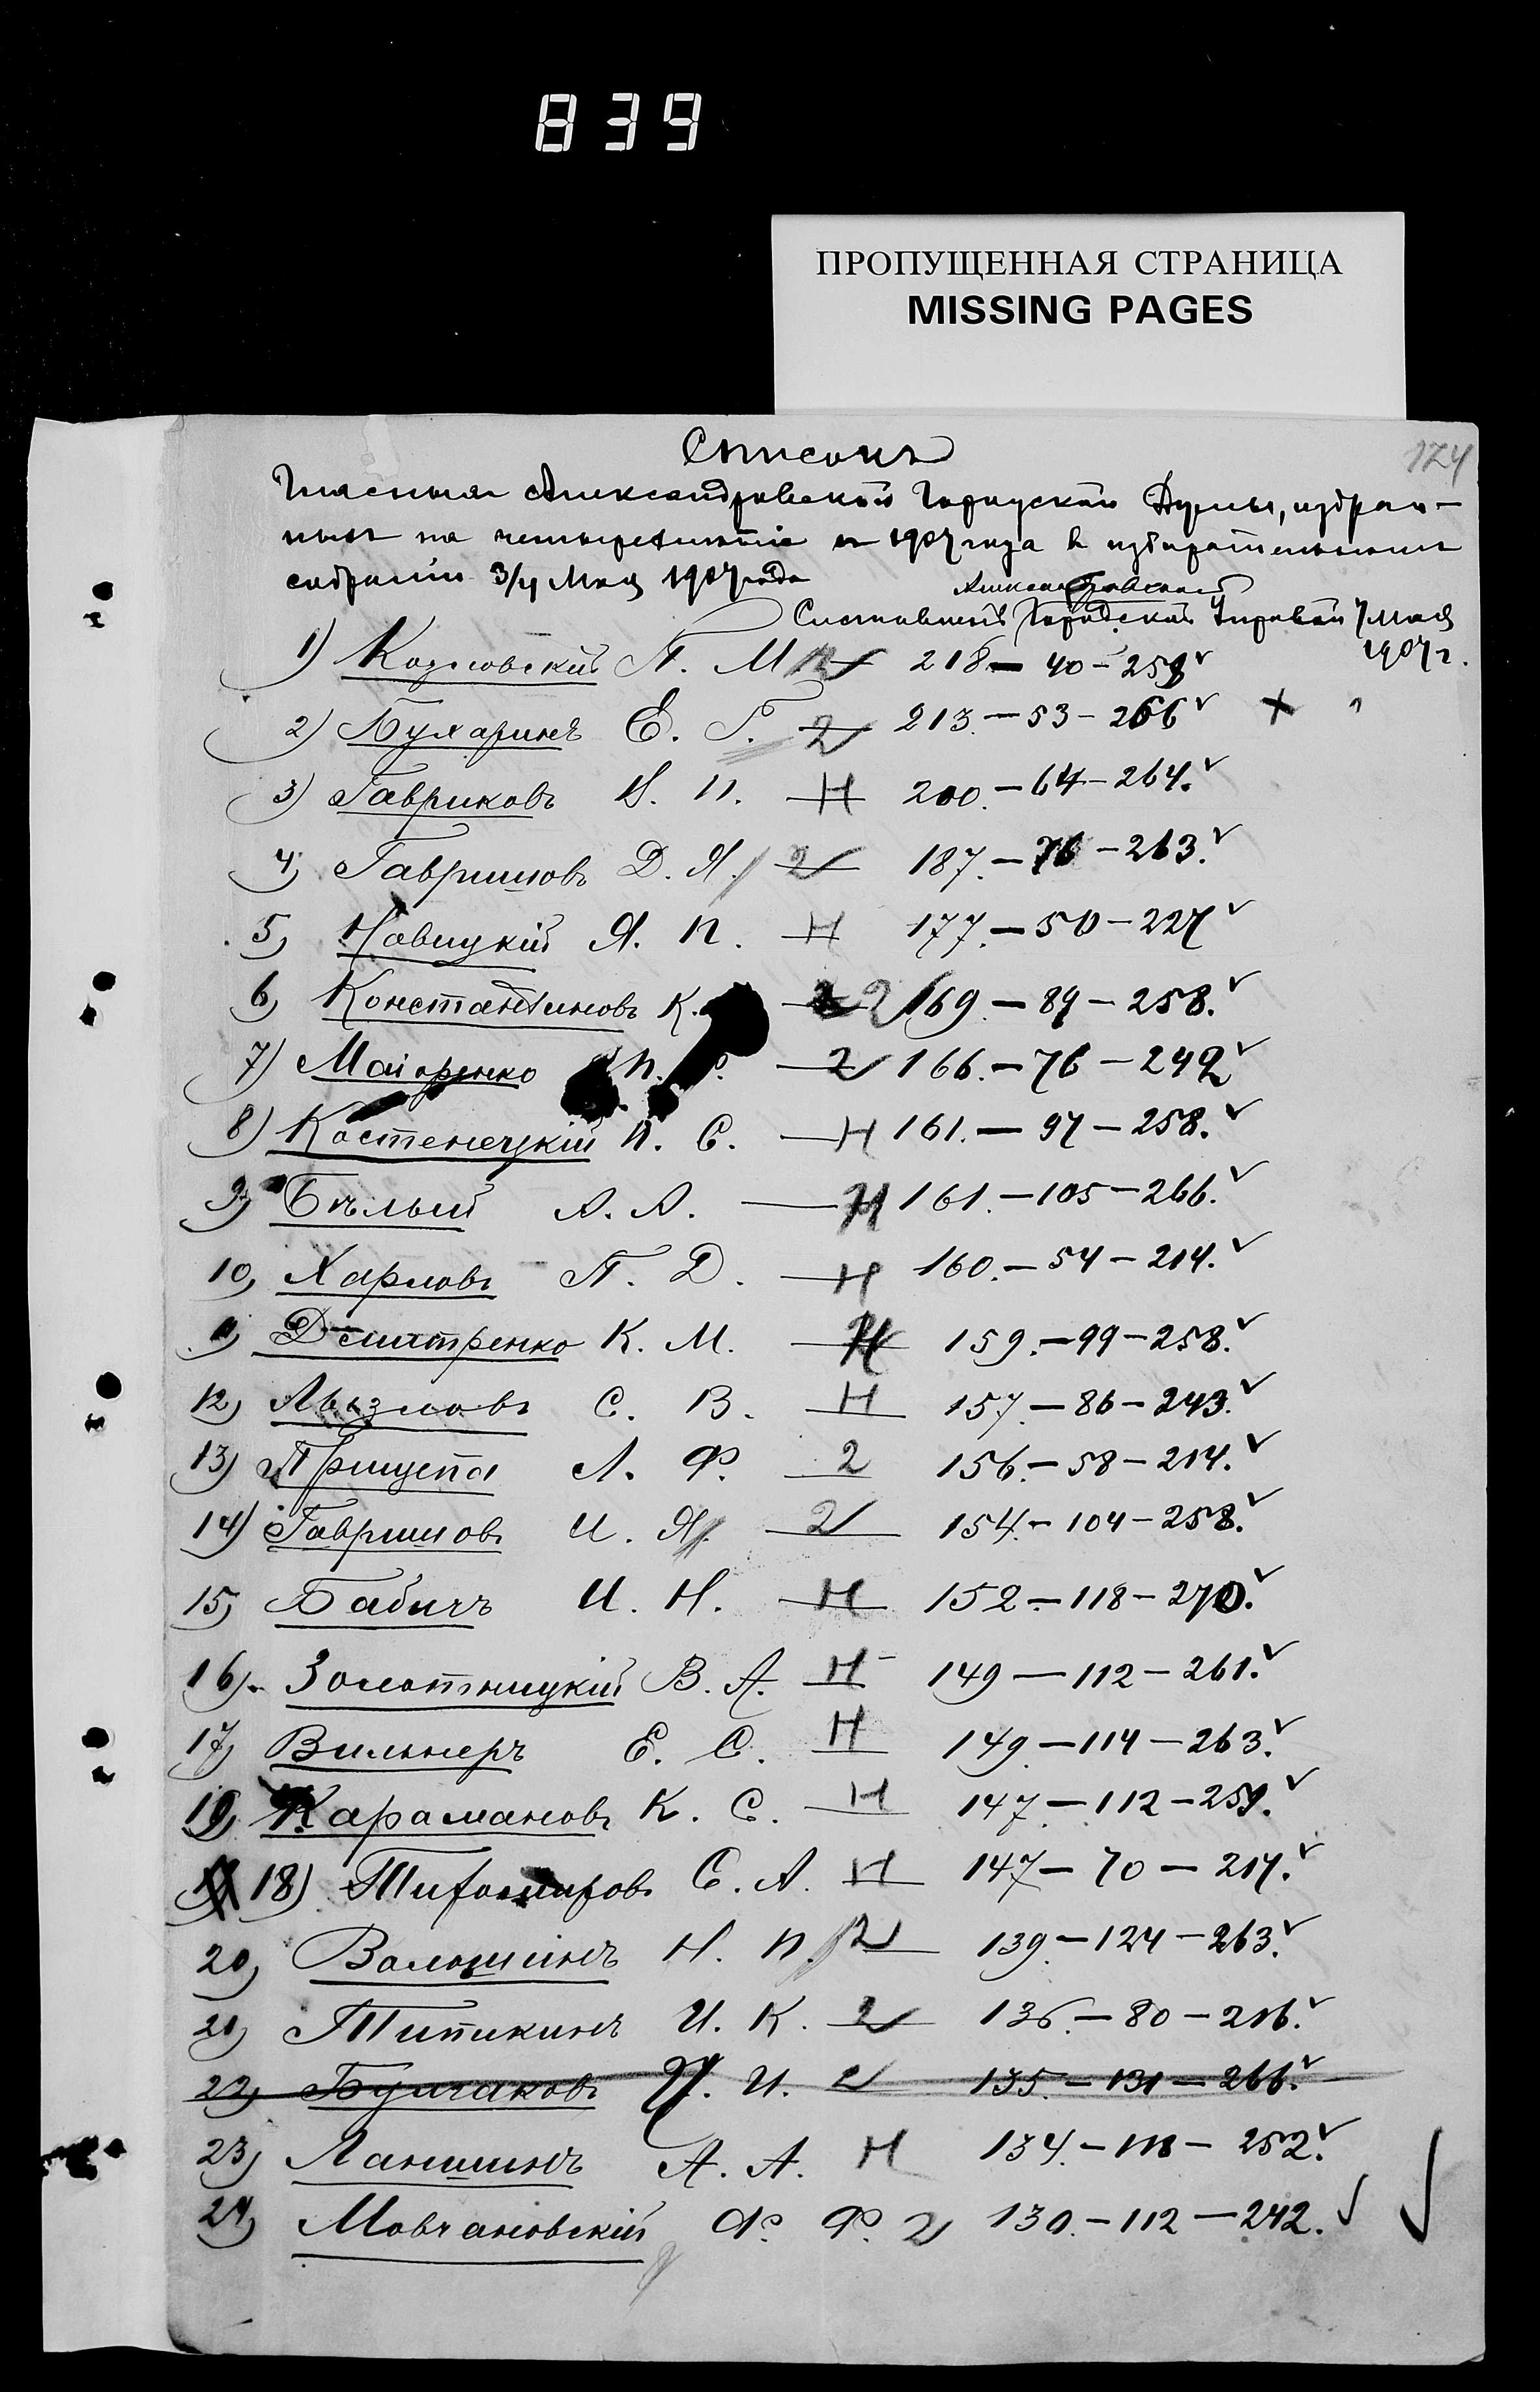 839
ПРОПУЩЕННАЯ СТРАНИЦА
MISSING PAGES
124
Списокъ
Гласныхъ Александровской Городской Думы, избран-
ныхъ на четырехлѣтіе съ 1907 года въ избирательномъ
собраніи 3/4 Мая 1907 года
Александровской
Составленъ Городской Управой 7 мая
1907 г.
1) Козловскій П. М. 2 218 — 40 — 258
2) Бухаринъ Е. Г. 2 213. — 53 — 266
3) Гавриковъ Н. И. Н 200. — 64 — 264.
4) Гавришовъ Д. Я. 2 187. — 76 — 263.
5) Новицкій Я. П. Н 177. — 50 — 227
6) Константиновъ К. 2 169. — 89 — 258.
7) Маіоренко И. 2 166. — 76 — 242
8) Костенецкій И. С. Н 161. — 97 — 258.
9) Бѣлый А. А. — Н 161. — 105 — 266.
10) Харловъ П. Д. — Н 160. — 54 — 214.
11) Дмитренко К. М. Н 159. — 99 — 258.
12) Лызловъ С. В. Н 157. — 86 — 243.
13) Прищепа Л. Ф. 2 156. — 58 — 214.
14) Гавришовъ И. Я. 2 154. — 104 — 258.
15) Бабичъ И. Н. Н 152 — 118 — 270.
16) Золотницкій В. А. Н 149 — 112 — 261.
17) Вильнеръ Е. С. Н 149. — 114 — 263.
19) Карамановъ К. С. Н 147. — 112 — 259.
18) Тихомировъ С. А. Н 147 — 70 — 217.
20) Волошинъ Н. И. 2 139. — 124 — 263.
21) Типикинъ И. К. 2 136. — 80 — 216.
22) Булчаковъ И. И. 2 135. — 131 — 266.
23) Ланшинъ А. А. Н 134. — 118 — 252.
24) Мовчановскій Ф. Ф. 2 130. — 112 — 242.